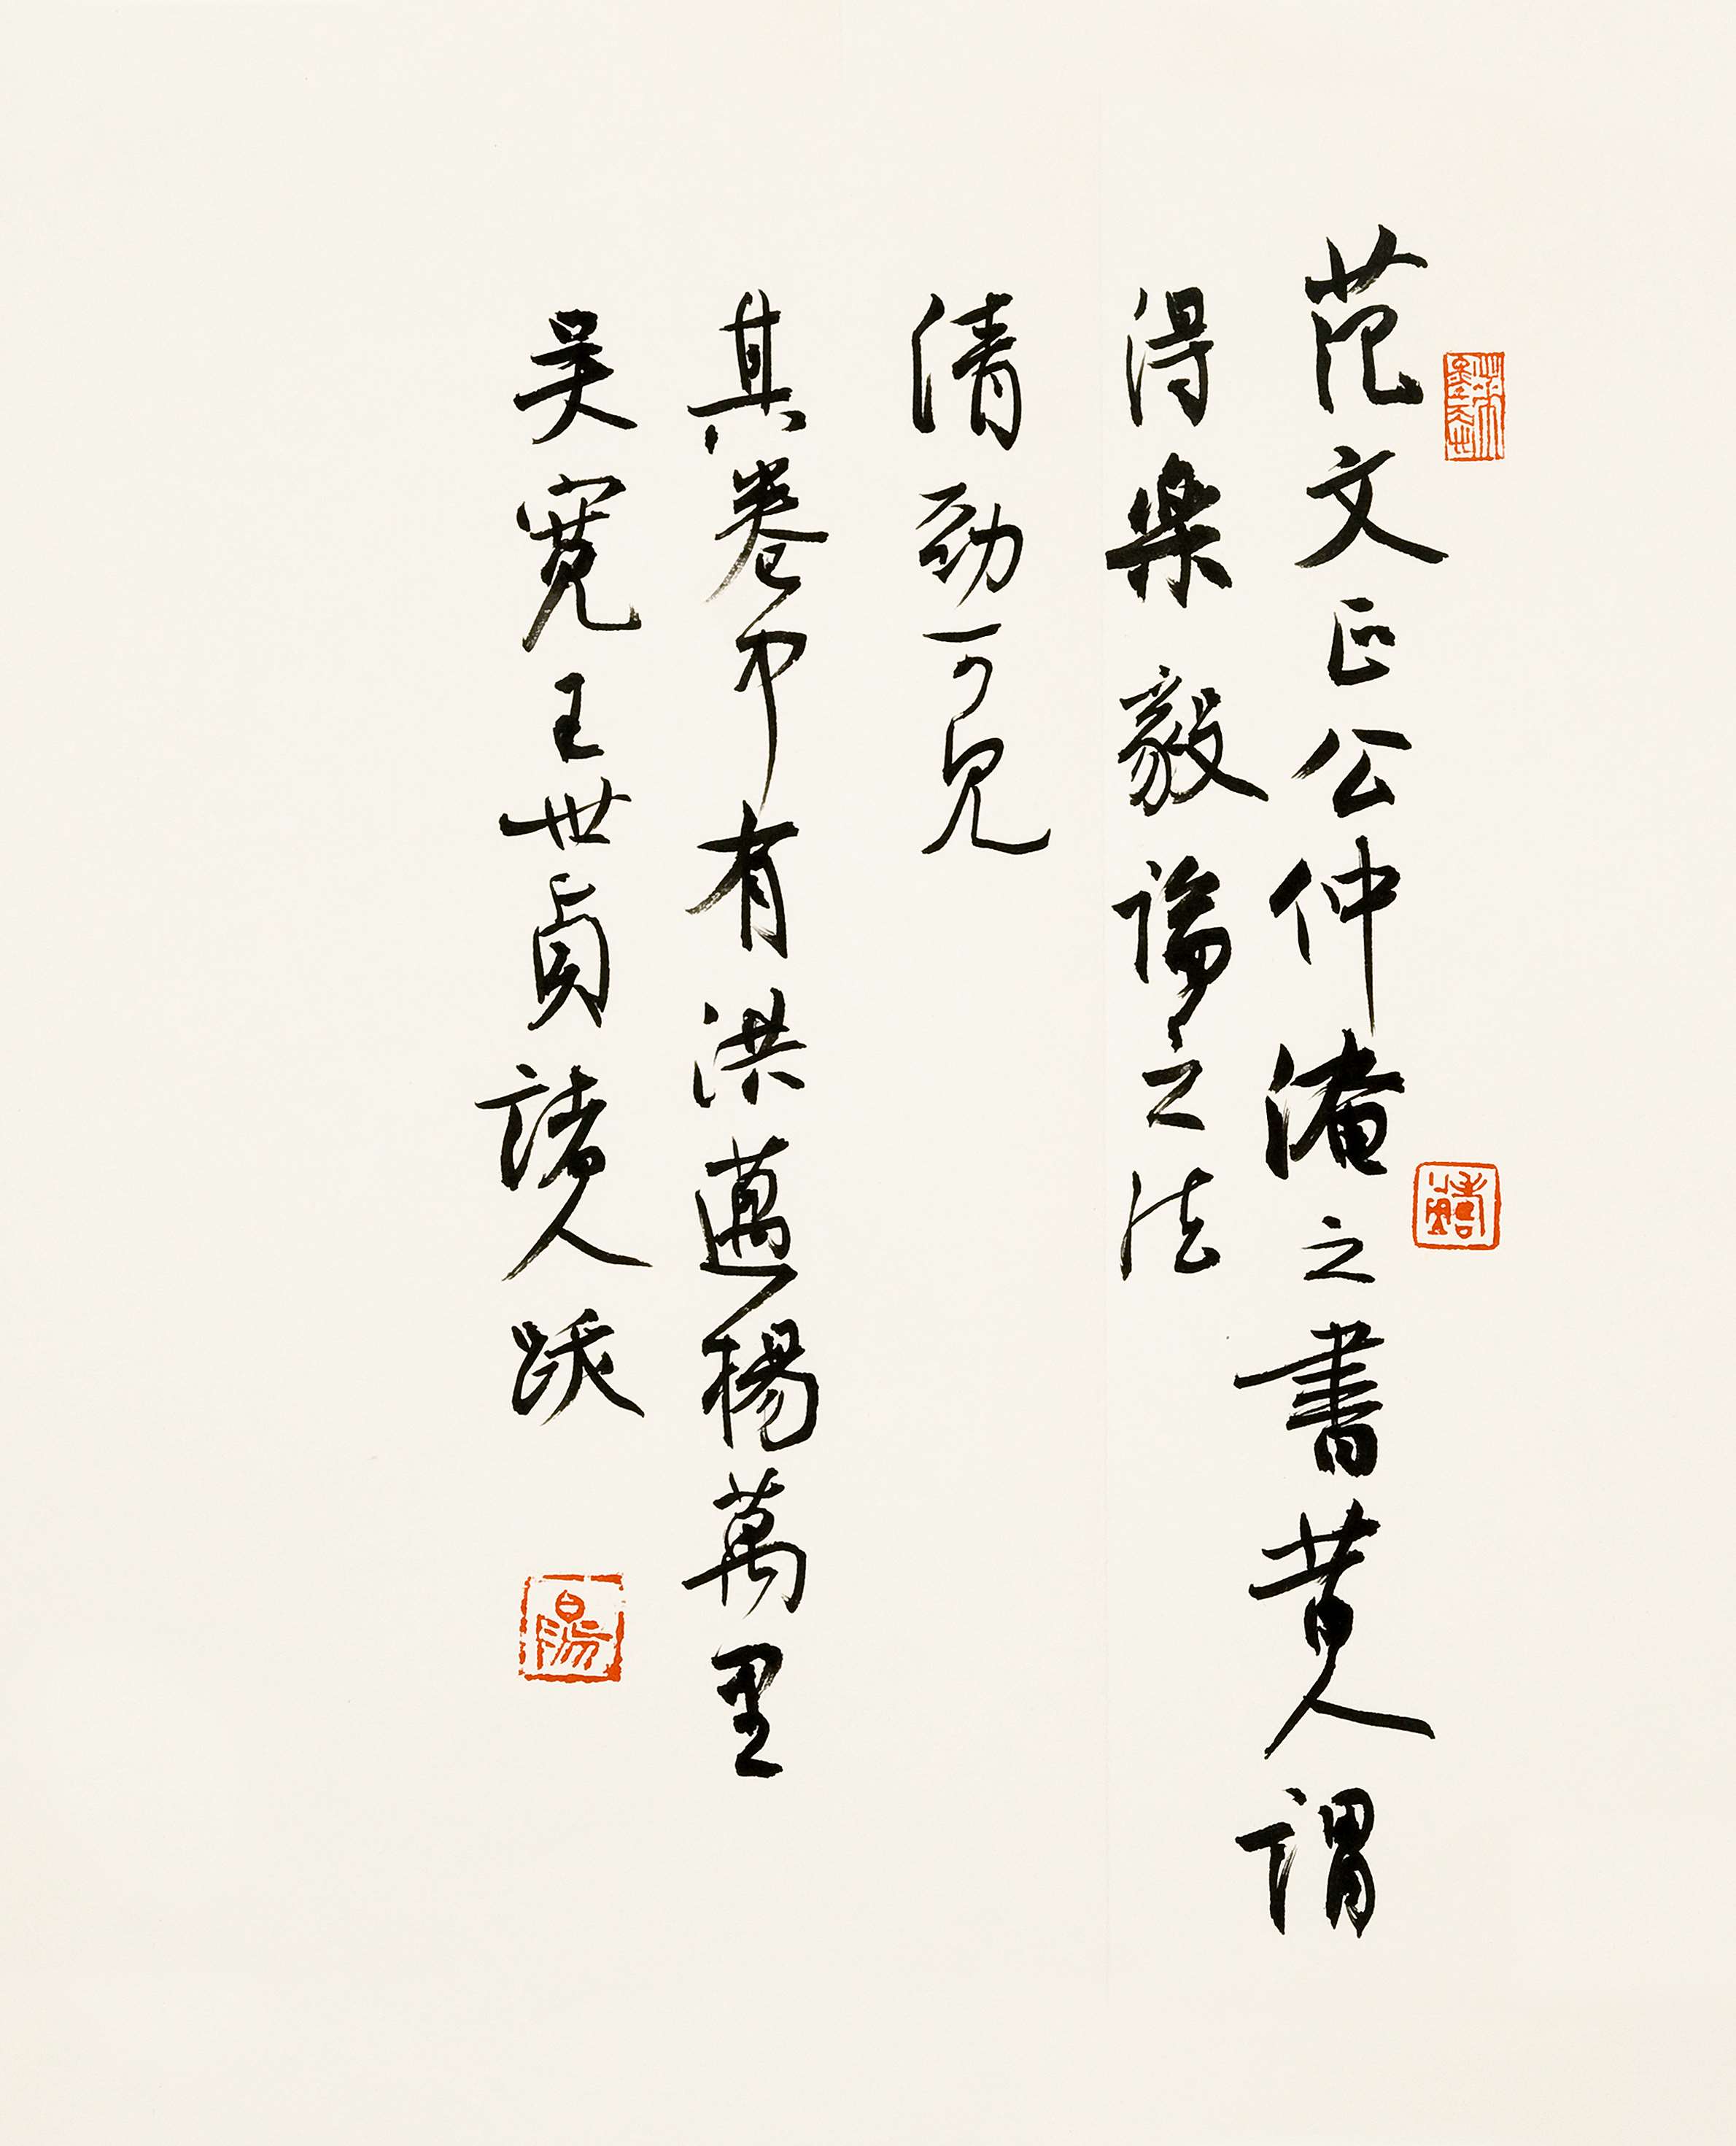 范文正公仲淹之書黃人謂
得樂毅論之法
清勁可見
其卷中有洪邁楊萬里
吴寬王世貞諸人跋